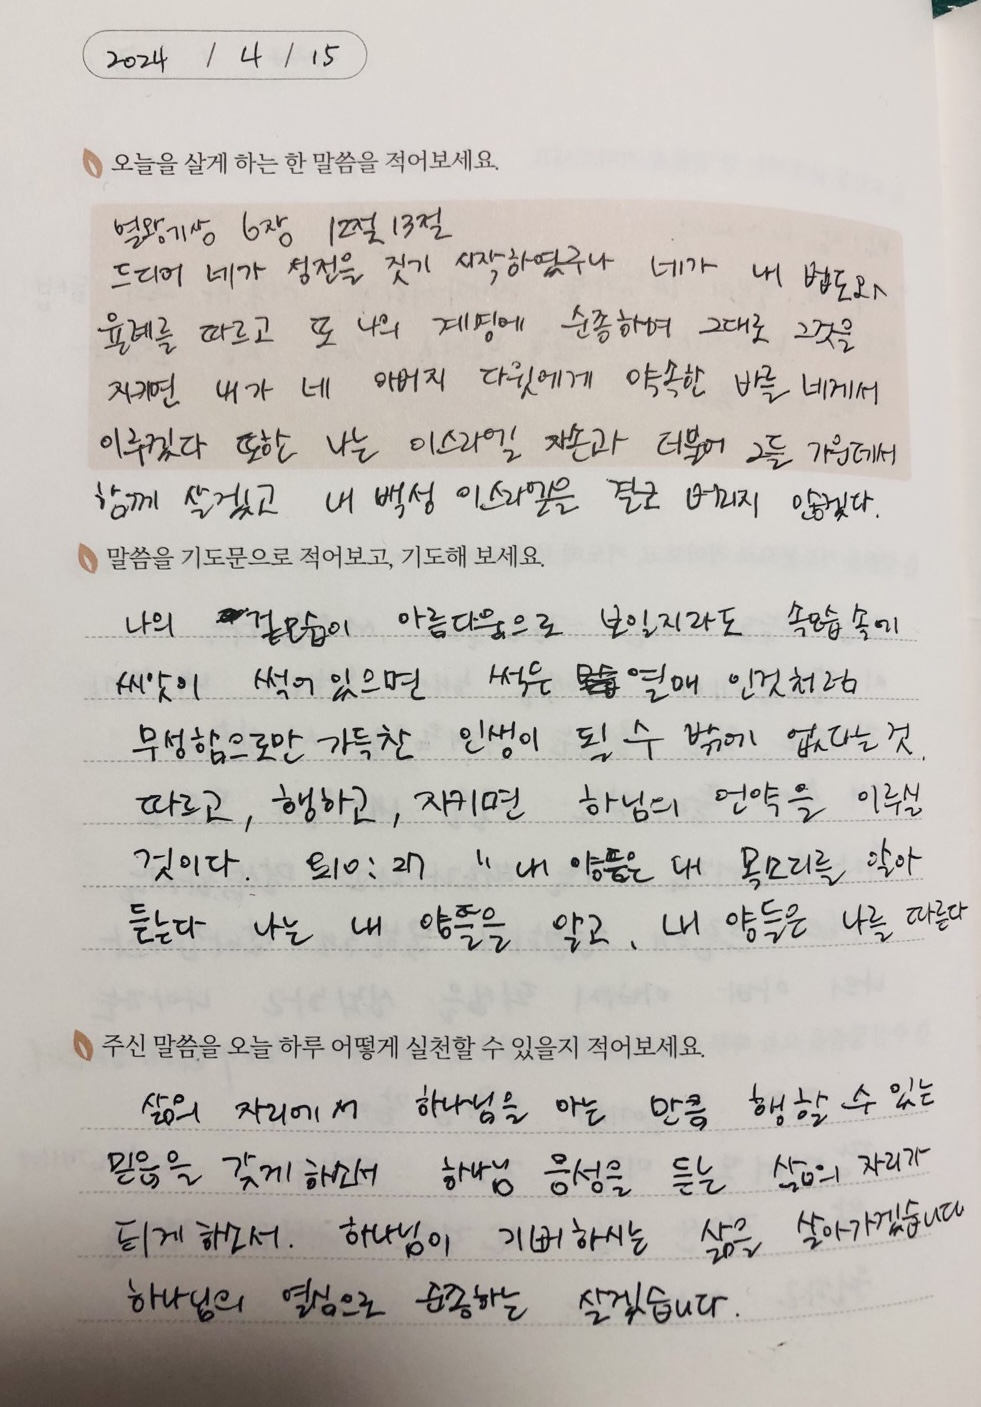 2024 / 4 / 15
오늘을 살게 하는 한 말씀을 적어보세요.
열왕기상 6장 12절 13절
드디어 네가 성전을 짓기 시작하였구나 네가 내 법도와
율례를 따르고 또 나의 계명에 순종하여 그대로 그것을
지키면 내가 네 아버지 다윗에게 약속한 바를 네게서
이루겠다 또한 나는 이스라엘 자손과 더불어 그들 가운데서
함께 살겠고 내 백성 이스라엘을 결코 버리지 않겠다.
말씀을 기도문으로 적어보고, 기도해 보세요.
나의 겉모습이 아름다움으로 보일지라도 속모습 속에
씨앗이 썩어 있으면 썩은 열매 인것처럼
무성함으로만 가득찬 인생이 될 수 밖에 없다는 것.
따르고, 행하고, 지키면 하나님의 언약을 이루실
것이다. 요10:27 "내 양들은 내 목소리를 알아
듣는다 나는 내 양들을 알고, 내 양들은 나를 따른다
주신 말씀을 오늘 하루 어떻게 실천할 수 있을지 적어보세요.
삶의 자리에서 하나님을 아는 만큼 행할 수 있는
믿음을 갖게 하소서 하나님 음성을 듣는 삶의 자리가
되게 하소서. 하나님이 기뻐하시는 삶을 살아가겠습니다
하나님의 열심으로 순종하는 살겠습니다.